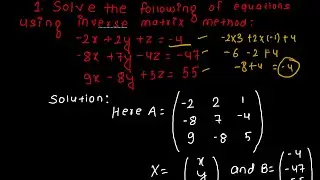 1. Solve the following of equations
using inverse matrix method:
-2x + 2y + z = -4
-2x3 + 2x(-1) + 4
-8x + 7y - 4z = -47
-6 - 2 + 4
9x - 8y + 5z = 55
-8 + 4 = -4
Solution:
Here A = ( -2 2 1
-8 7 -4
9 -8 5 )
X = ( x
y
and B = ( -4
-47
55